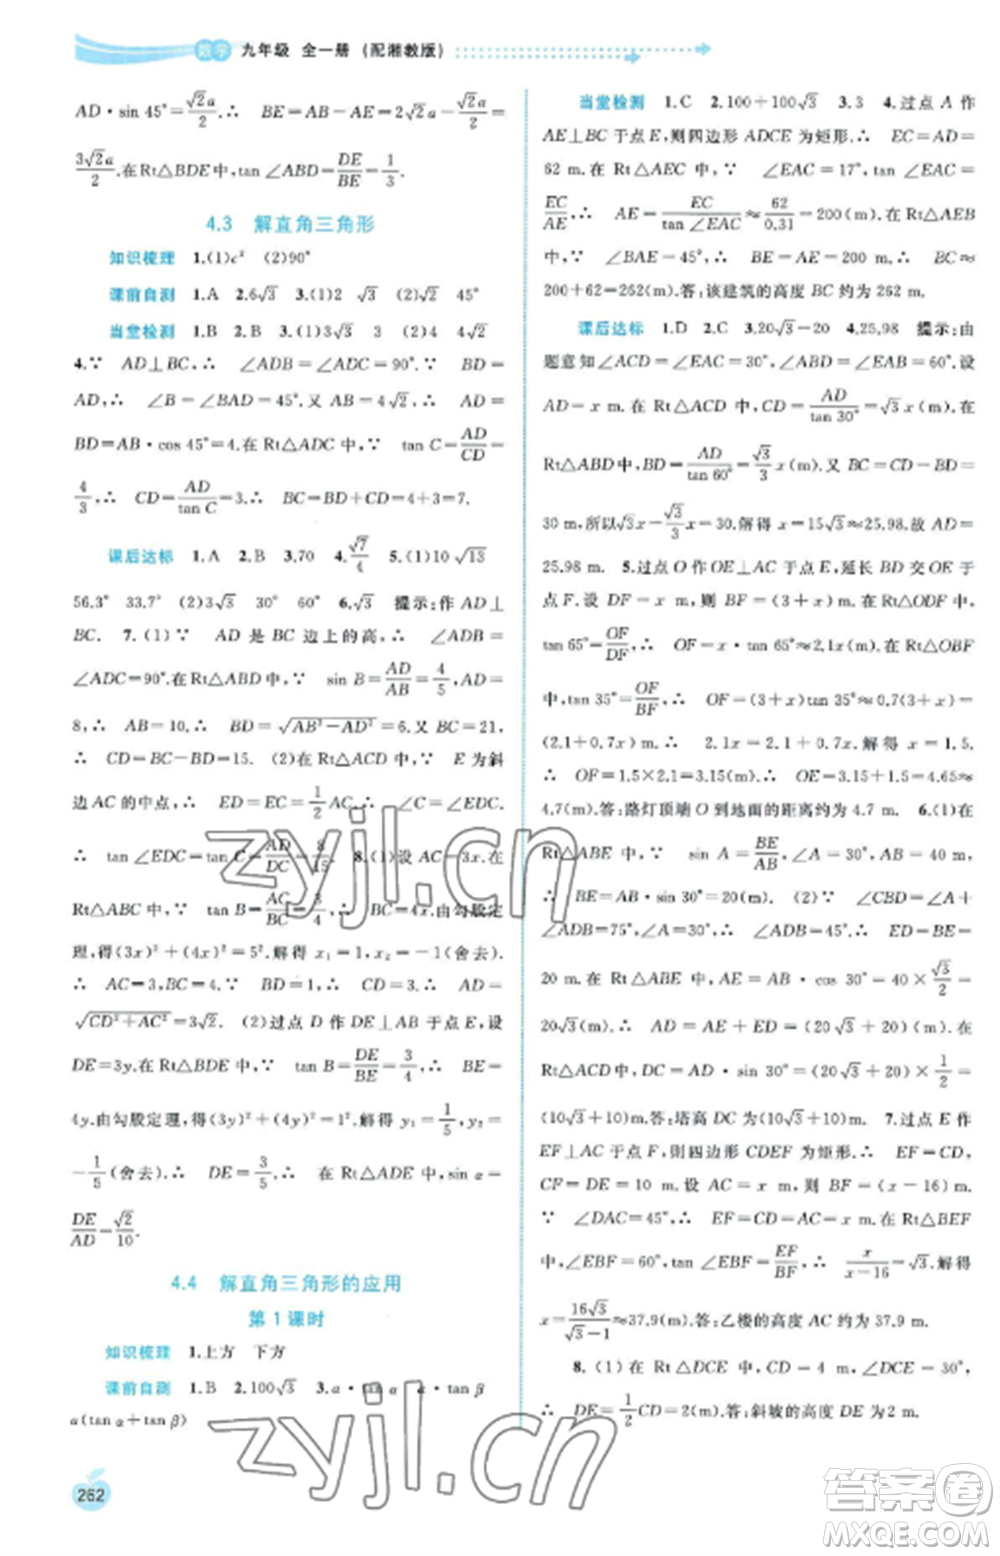 数学 九年级 全一册 (配湘教版)
AD·sin 45°=√2a/2.∴ BE=AB-AE=2√2a-√2a/2=
3√2a/2.在Rt△BDE中,tan∠ABD=DE/BE=1/3.
4.3 解直角三角形
知识梳理 1.(1)c² (2)90°
课前自测 1.A 2.6√3 3.(1)2 √3 (2)√2 45°
当堂检测 1.B 2.B 3.(1)3√3 3 (2)4 4√2
4.∵ AD⊥BC,∴ ∠ADB=∠ADC=90°.∵ BD=
AD,∴ ∠B=∠BAD=45°.又 AB=4√2,∴ AD=
BD=AB·cos 45°=4.在Rt△ADC中,∵ tan C=AD/CD=
4/3,∴ CD=AD/tan C=3.∴ BC=BD+CD=4+3=7.
课后达标 1.A 2.B 3.70 4.√7/4 5.(1)10√13
56.3° 33.7° (2)3√3 30° 60° 6.√3 提示:作 AD⊥
BC. 7.(1)∵ AD 是 BC 边上的高,∴ ∠ADB=
∠ADC=90°.在Rt△ABD中,∵ sin B=AD/AB=4/5,AD=
8,∴ AB=10.∴ BD=√(AB²-AD²)=6.又 BC=21,
∴ CD=BC-BD=15. (2)在Rt△ADC中,∵ E为斜
边 AC 的中点,∴ ED=EC=1/2AC.∴ ∠C=∠EDC.
∴ tan∠EDC=tan C=AD/DC=8/15. 8.(1)设 AC=3x.在
Rt△ABC中,∵ tan B=AC/BC=3/4,∴ BC=4x.由勾股定
理,得(3x)²+(4x)²=5².解得 x₁=1,x₂=-1(舍去).
∴ AC=3.∵ BD=1,∴ CD=3.∴ AD=
√(CD²+AC²)=3√2. (2)过点 D 作 DE⊥AB 于点 E,设
DE=3y.在Rt△BDE中,∵ tan B=DE/BE=3/4,∴ BE=
4y.由勾股定理,得(3y)²+(4y)²=1.解得 y₁=1/5,y₂=
-1/5(舍去).∴ DE=3/5.∴ 在 Rt△ADE 中,sin α=
DE/AD=√2/10.
4.4 解直角三角形的应用
第 1 课时
知识梳理 1.上方 下方
课前自测 1.B 2.100√3 3.a·tan α a·tan β
a(tan α+tan β)
262
当堂检测 1.C 2.100+100√3 3.3 4.过点 A 作
AE⊥BC于点E,则四边形 ADCE 为矩形.∴ EC=AD=
62 m.在 Rt△AEC 中,∵ ∠EAC=17°,tan∠EAC=
EC/AE,∴ AE=EC/tan∠EAC≈62/0.31=200(m).在Rt△AEB
中,∵ ∠BAE=45°,∴ BE=AE=200 m.∴ BC=
200+62=262(m).答:该建筑的高度 BC 约为 262 m.
课后达标 1.D 2.C 3.20√3-20 4.25.98 提示:由
题意知∠ACD=∠EAC=30°,∠ABD=∠EAB=60°.设
AD=x m.在Rt△ACD中,CD=AD/tan 30°=√3x(m).在
Rt△ABD中,BD=AD/tan 60°=√3/3x(m).又 BC=CD-BD=
30 m,所以√3x-√3/3x=30.解得 x=15√3≈25.98.故 AD=
25.98 m. 5.过点 O 作 OE⊥AC于点 E,延长 BD 交 OE 于
点F.设 DF=x m,则 BF=(3+x)m.∵ 在 Rt△ODF 中,
tan 65°=OF/DF,∴ OF=x·tan 65°≈2.1x(m).在Rt△OBF
中,tan 35°=OF/BF,∴ OF=(3+x)tan 35°≈0.7(3+x)=
(2.1+0.7x)m.∴ 2.1x=2.1+0.7x.解得 x=1.5.
∴ OF=1.5×2.1=3.15(m).∴ OE=3.15+1.5=4.65≈
4.7(m).答:路灯顶端 O 到地面的距离约为 4.7 m. 6.(1)在
Rt△ABE 中,∵ sin A=BE/AB,∠A=30°,AB=40 m,
∴ BE=AB·sin 30°=20(m). (2)∵ ∠CBD=∠A+
∠ADB=75°,∠A=30°,∴ ∠ADB=45°.∴ ED=BE=
20 m.在 Rt△ABE 中,AE=AB·cos 30°=40×√3/2=
20√3(m).∴ AD=AE+ED=(20√3+20)m.在
Rt△ADC中,DC=AD·sin 30°=(20√3+20)×1/2=
(10√3+10)m.答:塔高 DC为(10√3+10)m. 7.过点 E 作
EF⊥AC于点 F,则四边形 CDEF 为矩形.∴ EF=CD,
CF=DE=16 m.设 AC=x m,则 BF=(x-16)m.
∵ ∠DAC=45°,∴ EF=CD=AC=x m.在Rt△BEF
中,∵ ∠EBF=60°,tan∠EBF=EF/BF,∴ x/(x-16)=√3.解得
x=16√3/(√3-1)≈37.9(m).答:乙楼的高度 AC约为 37.9 m.
8.(1)在 Rt△DCE 中,CD=4 m,∠DCE=30°,
∴ DE=1/2CD=2(m).答:斜坡的高度 DE 为2 m.
zyjl.cn
zyjl.cn
答案圈
MXQE.COM